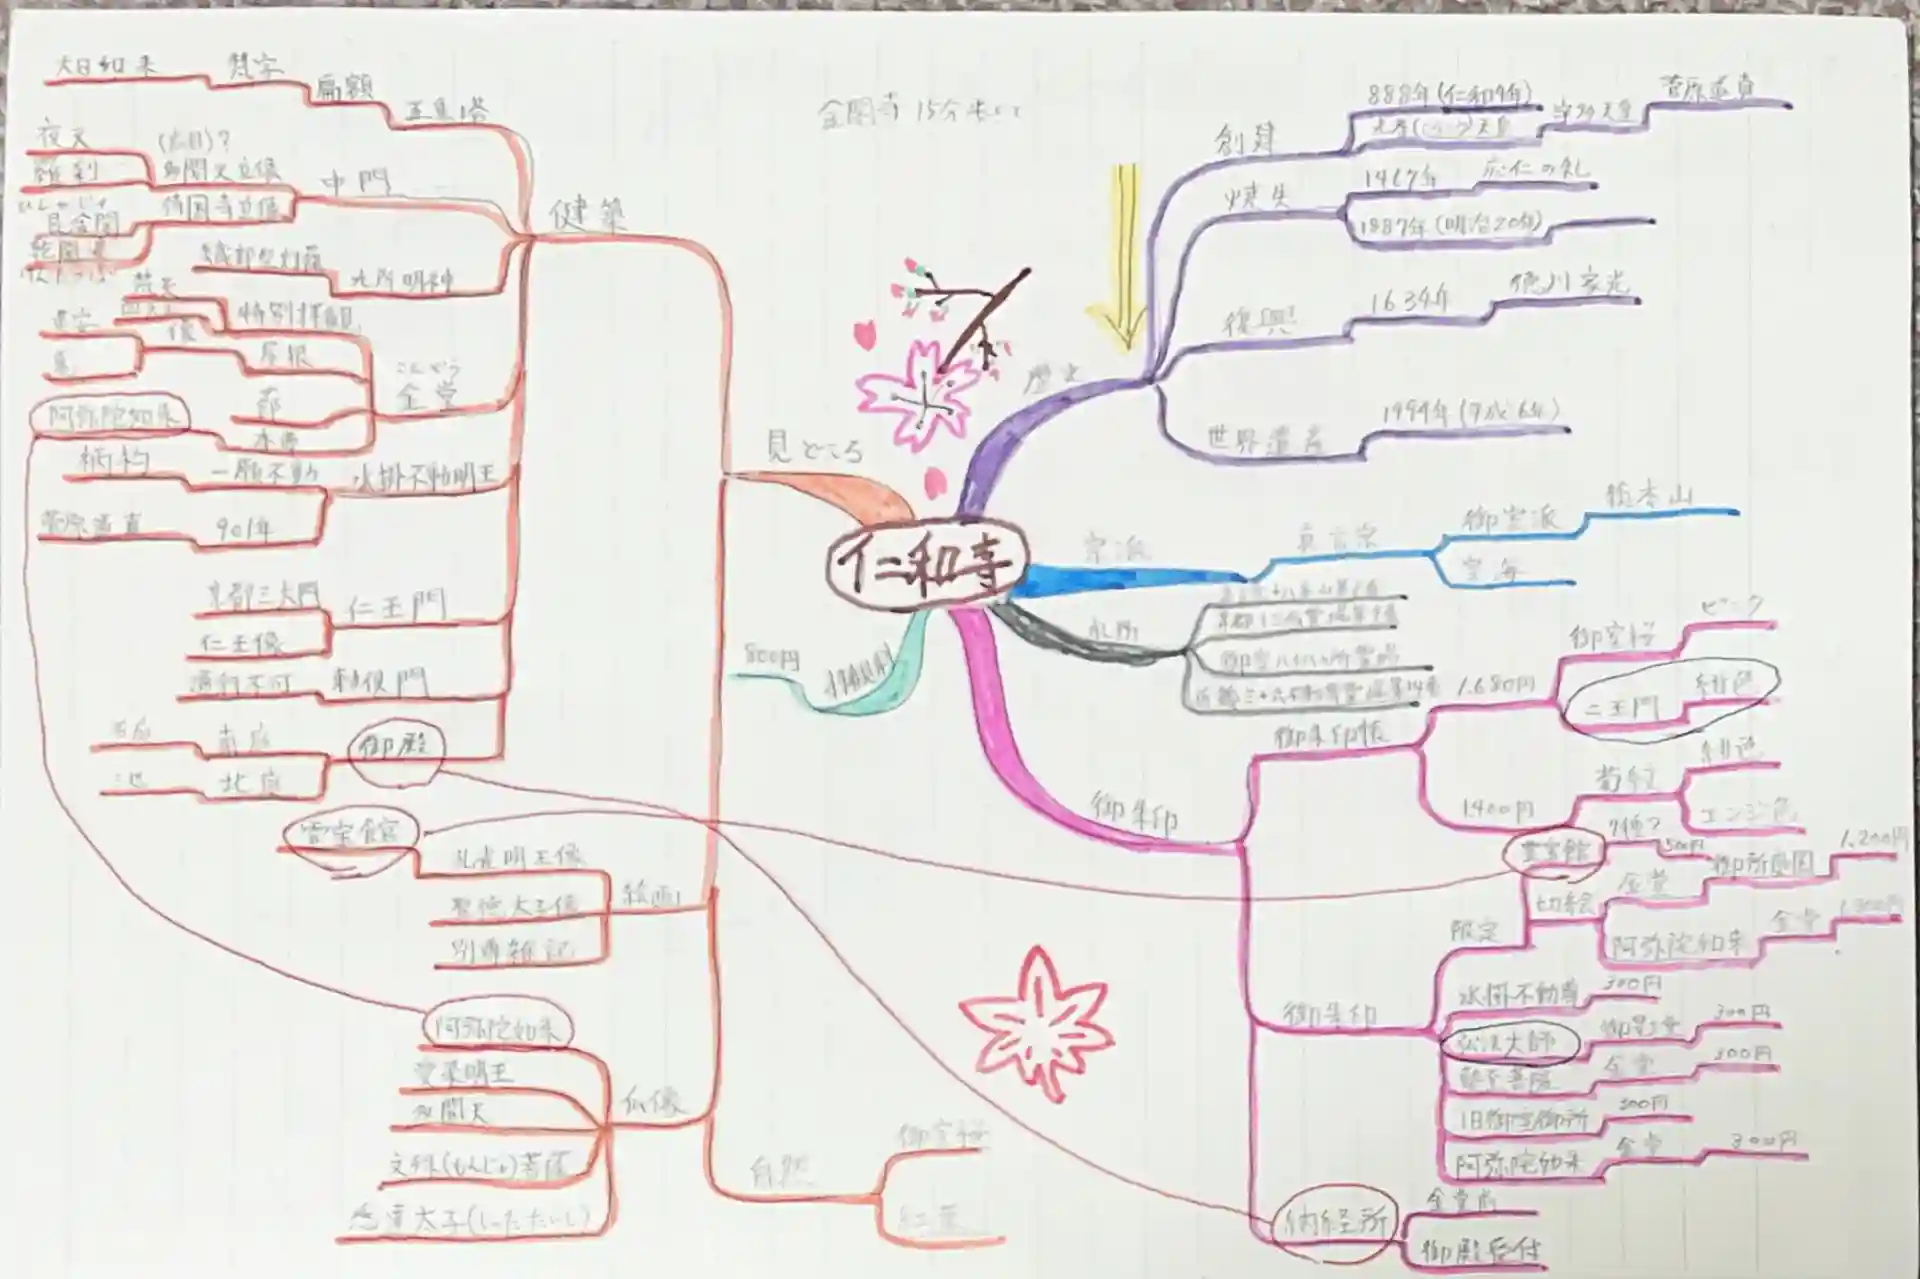 仁和寺
金閣寺 15分歩いて
歴史
創建
888年(仁和4年)
宇多天皇
菅原道真
焼失
1467年
応仁の乱
1887年(明治20年)
復興
1634年
徳川家光
世界遺産
1994年(平成6年)
宗派
真言宗
御室派
総本山
空海
札所
御朱印
御朱印帳
1,680円
御室桜
ピンク
二王門
紺色
1400円
菊紋
紺色
エンジ色
御朱印
限定
霊宝館
500円
切絵
金堂
1,200円
阿弥陀如来
金堂
水掛不動尊
300円
弘法大師
御影堂
300円
金堂
300円
旧御室御所
300円
阿弥陀如来
金堂
300円
納経所
金堂前
御殿受付
拝観料
800円
見どころ
健築
五重塔
扁額
梵字
大日如来
中門
夜叉
羅刹
九所明神
織部型灯籠
こんどう
金堂
特別拝観
屋根
像
本尊
阿弥陀如来
水掛不動明王
一願不動
柄杓
901年
菅原道真
仁王門
京都三大門
仁王像
勅使門
通行不可
御殿
南庭
北庭
池
絵画
孔雀明王像
霊宝館
聖徳太子像
別尊雑記
仏像
阿弥陀如来
愛染明王
多聞天
文殊(もんじゅ)菩薩
悉達太子(しったたいし)
自然
御室桜
紅葉